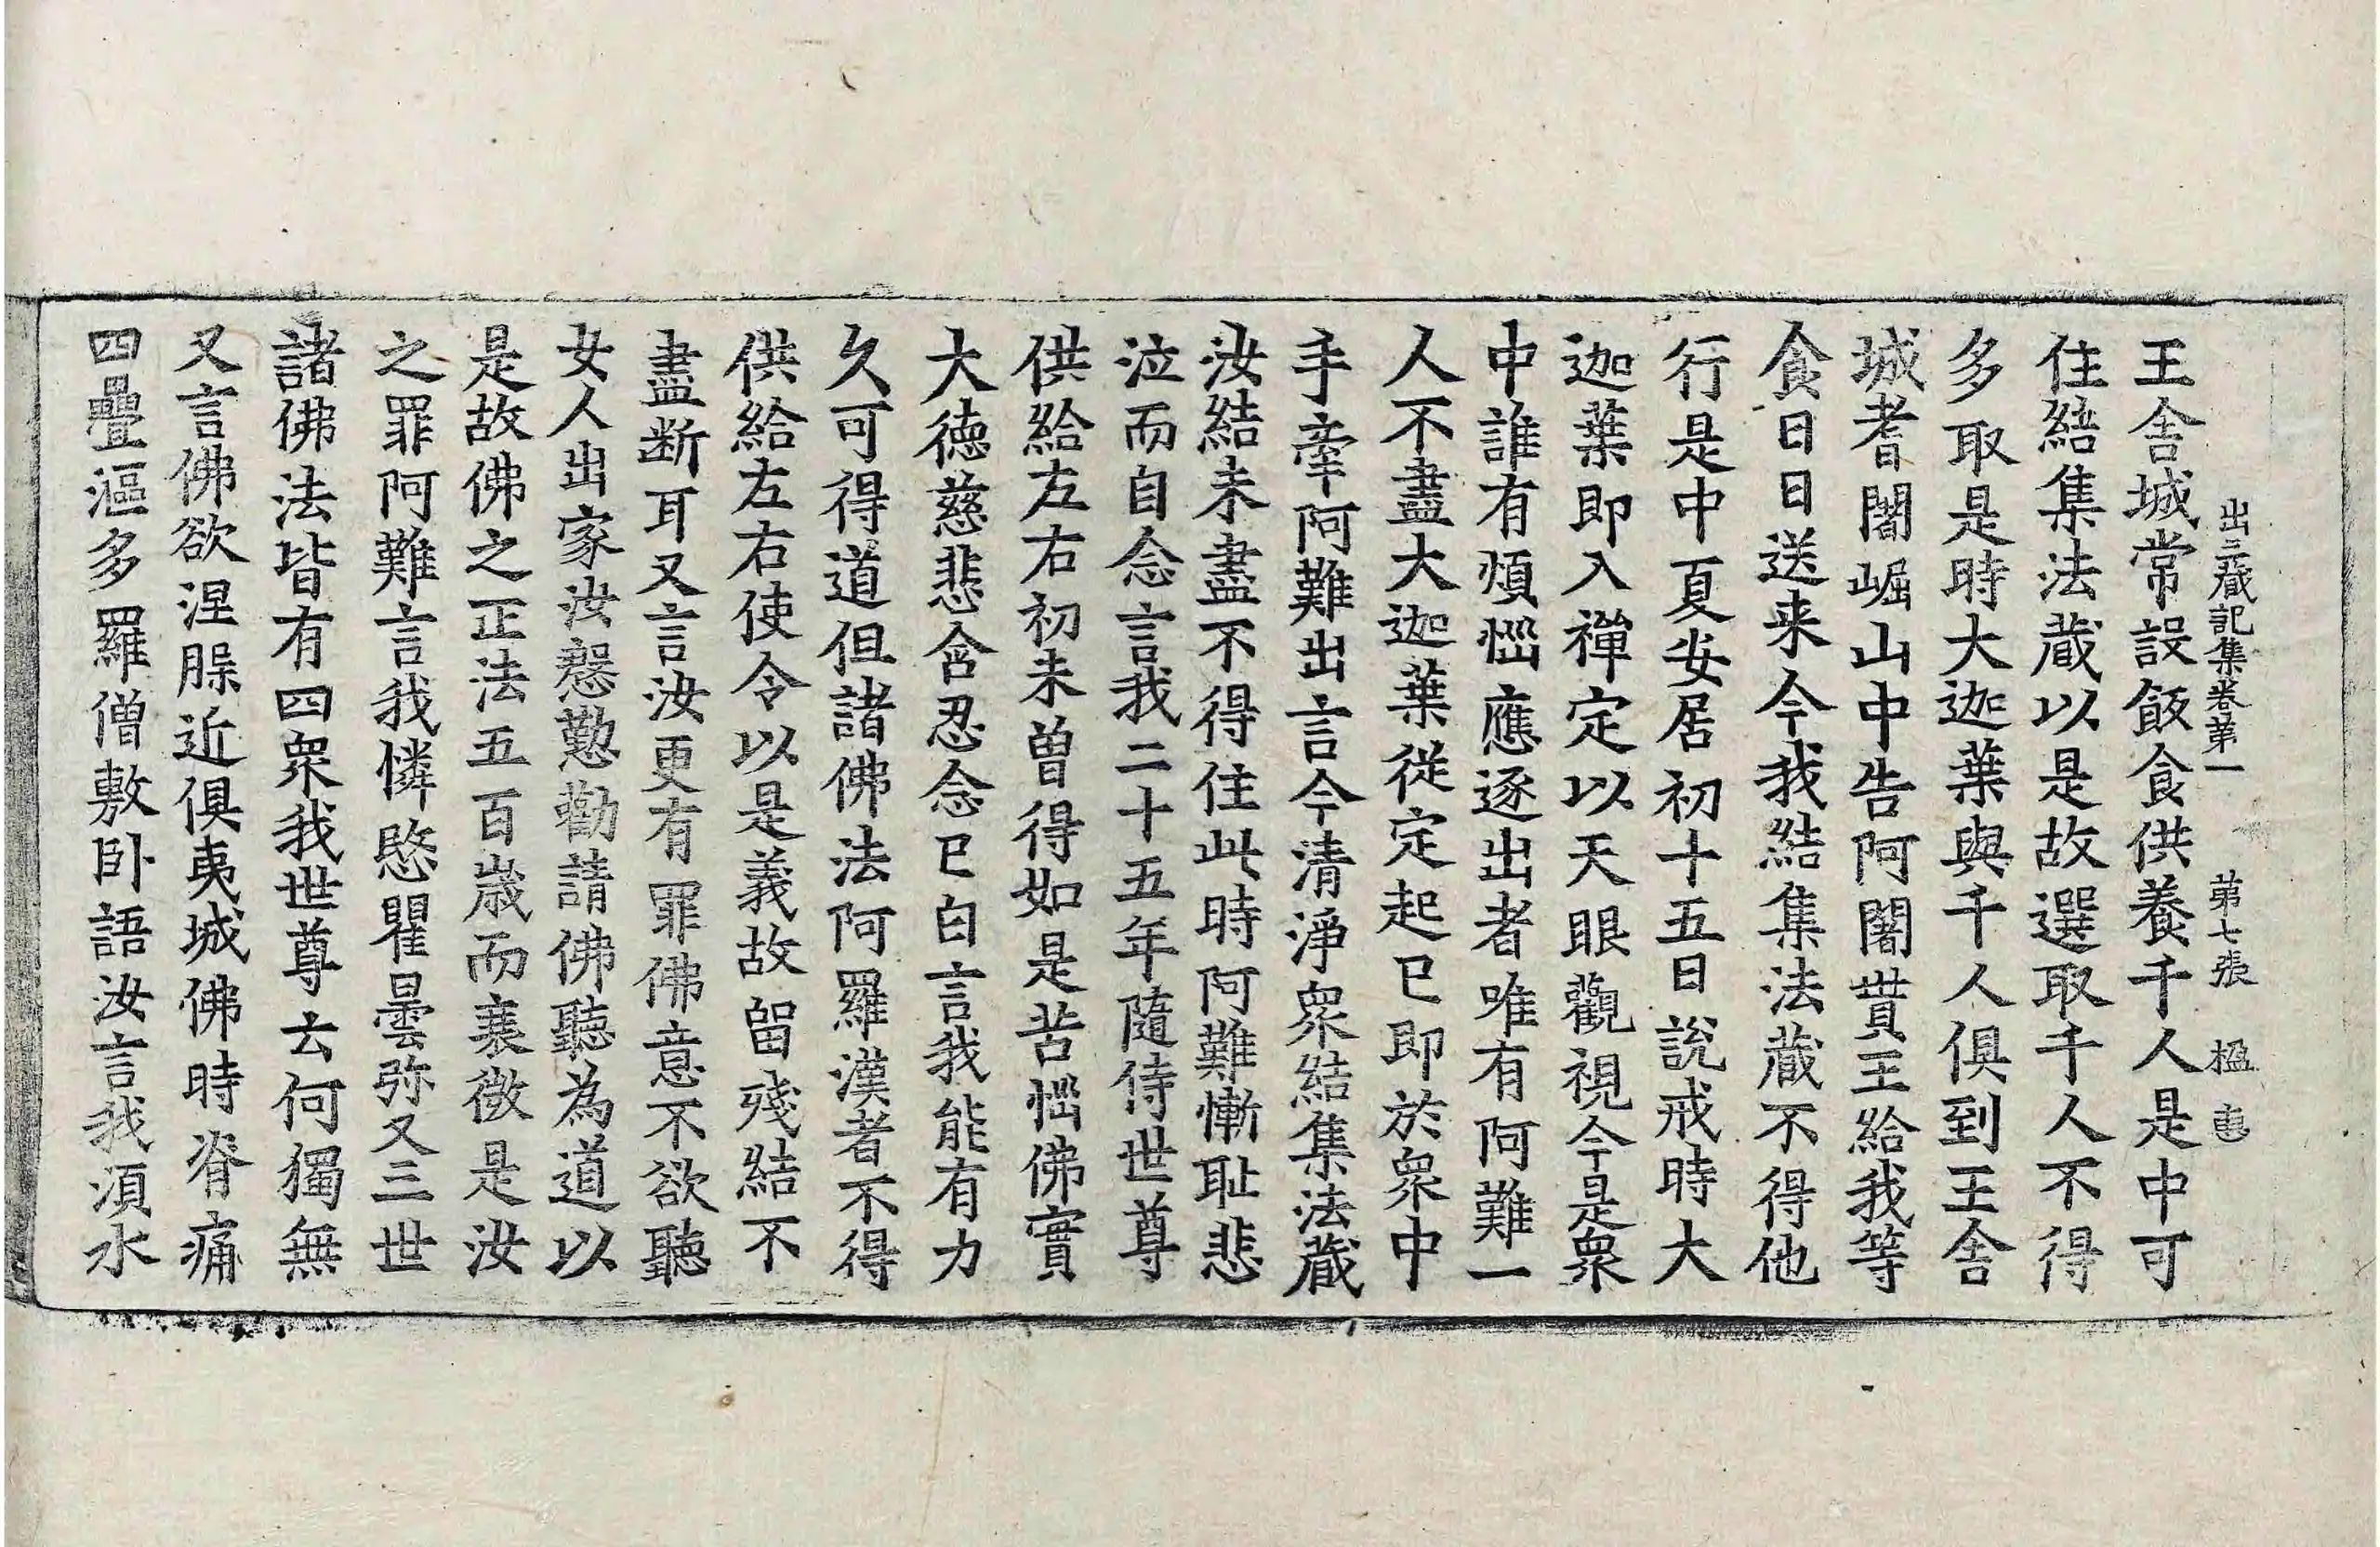 出三藏記集卷苐一 苐七張 楹 㤫
王舍城常設飯食供養千人是中可
住結集法藏以是故選取千人不得
多取是時大迦葉與千人俱到王舍
城耆闍崛山中告阿闍貰王給我等
食日日送来今我結集法藏不得他
行是中夏安居初十五日說戒時大
迦葉即入禪定以天眼觀視今是衆
中誰有煩惱應逐出者唯有阿難一
人不盡大迦葉從定起已即於衆中
手牽阿難出言今清淨衆結集法藏
汝結未盡不得住此時阿難慚耻悲
泣而自念言我二十五年隨侍世尊
供給左右初未曾得如是苦惱佛實
大德慈悲含忍念已白言我能有力
久可得道但諸佛法阿羅漢者不得
供給左右使令以是義故留殘結不
盡断耳又言汝更有罪佛意不欲聽
女人出家汝慇懃勸請佛聽為道以
是故佛之正法五百歲而衰微是汝
之罪阿難言我憐愍瞿曇弥又三世
諸佛法皆有四衆我世尊云何獨無
又言佛欲涅槃近俱夷城佛時脊痛
四疊漚多羅僧敷卧語汝言我湏水